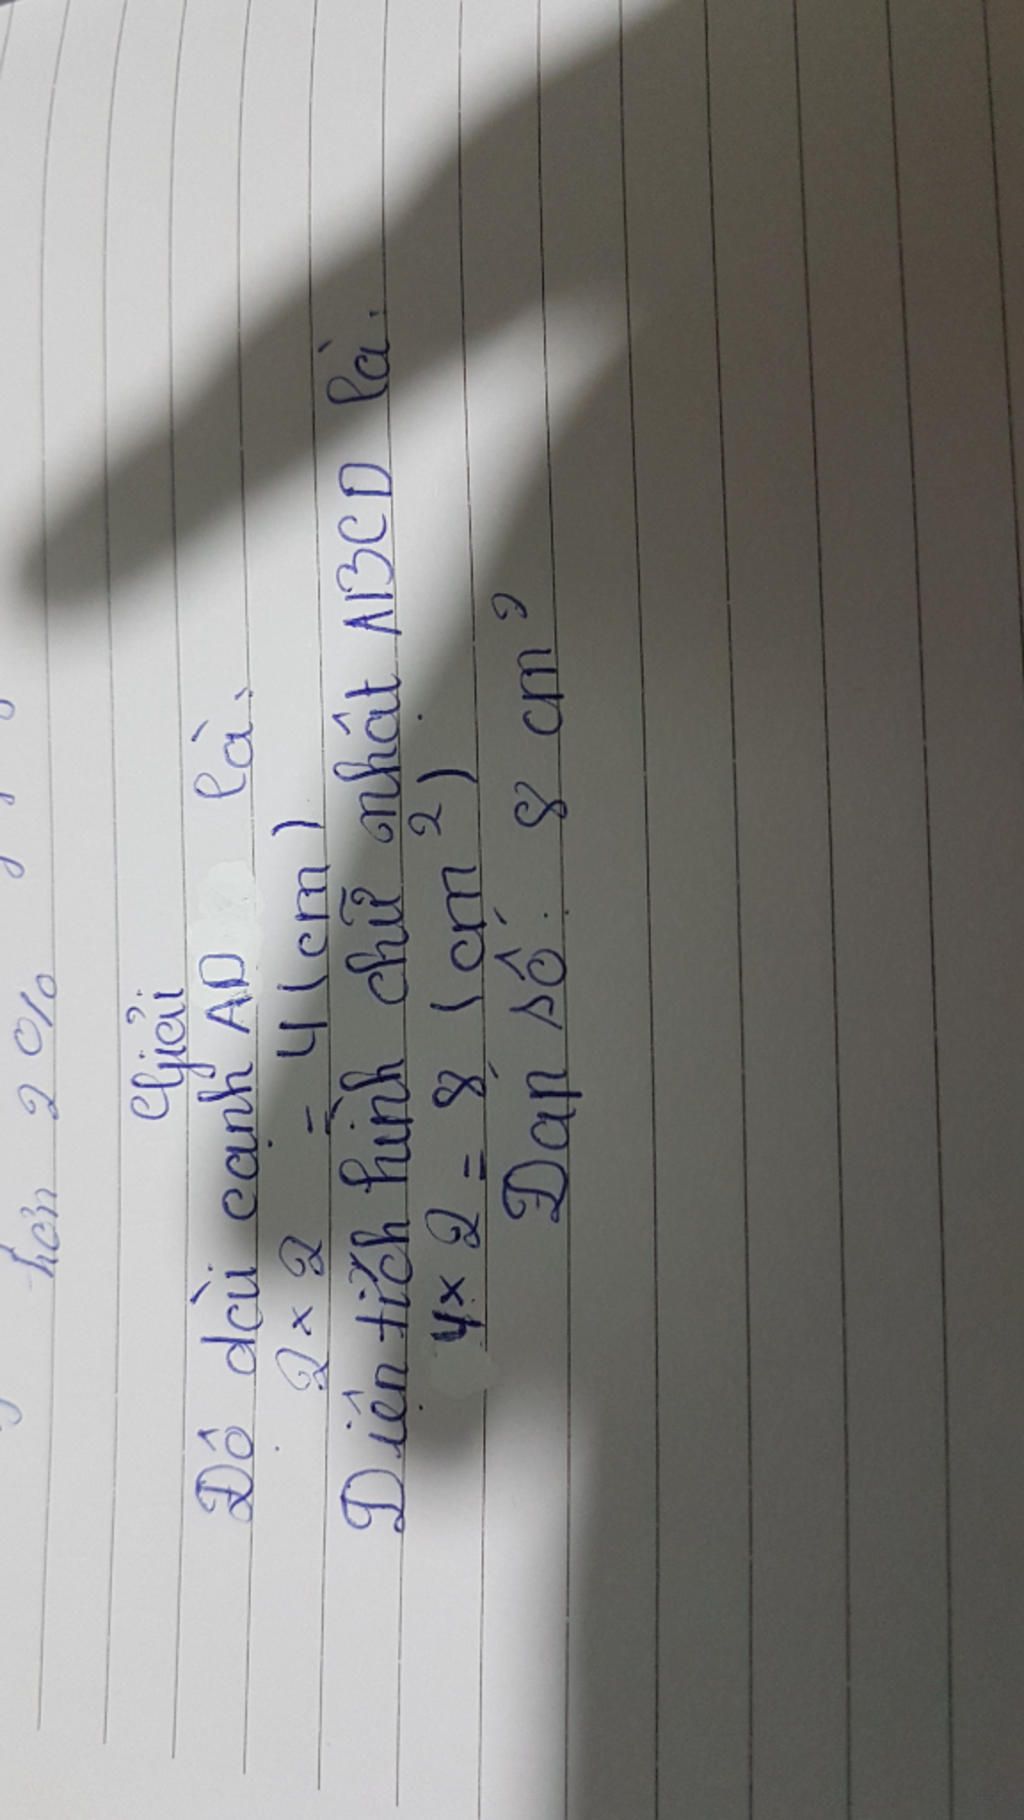 hơn 20%
Giải
Độ dài cạnh AD là:
2 × 2 = 4 (cm)
Diện tích hình chữ nhật ABCD là:
4 × 2 = 8 (cm²)
Đáp số: 8 cm²